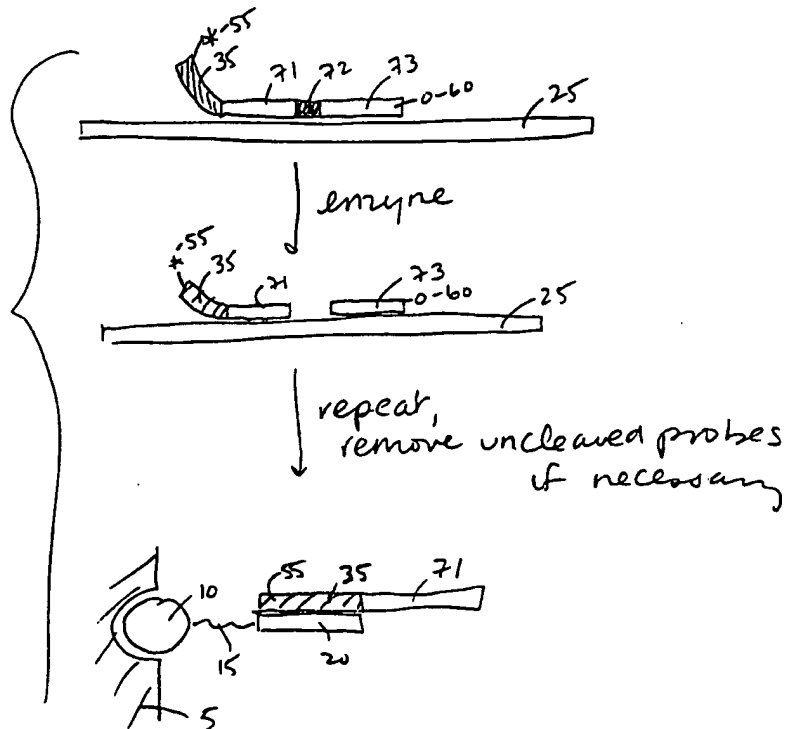 *-55
35
71
72
73
0-60
25
enzyne
*-55
35
71
73
0-60
25
repeat,
remove uncleaved probes
if necessary
10
15
55
35
71
20
5